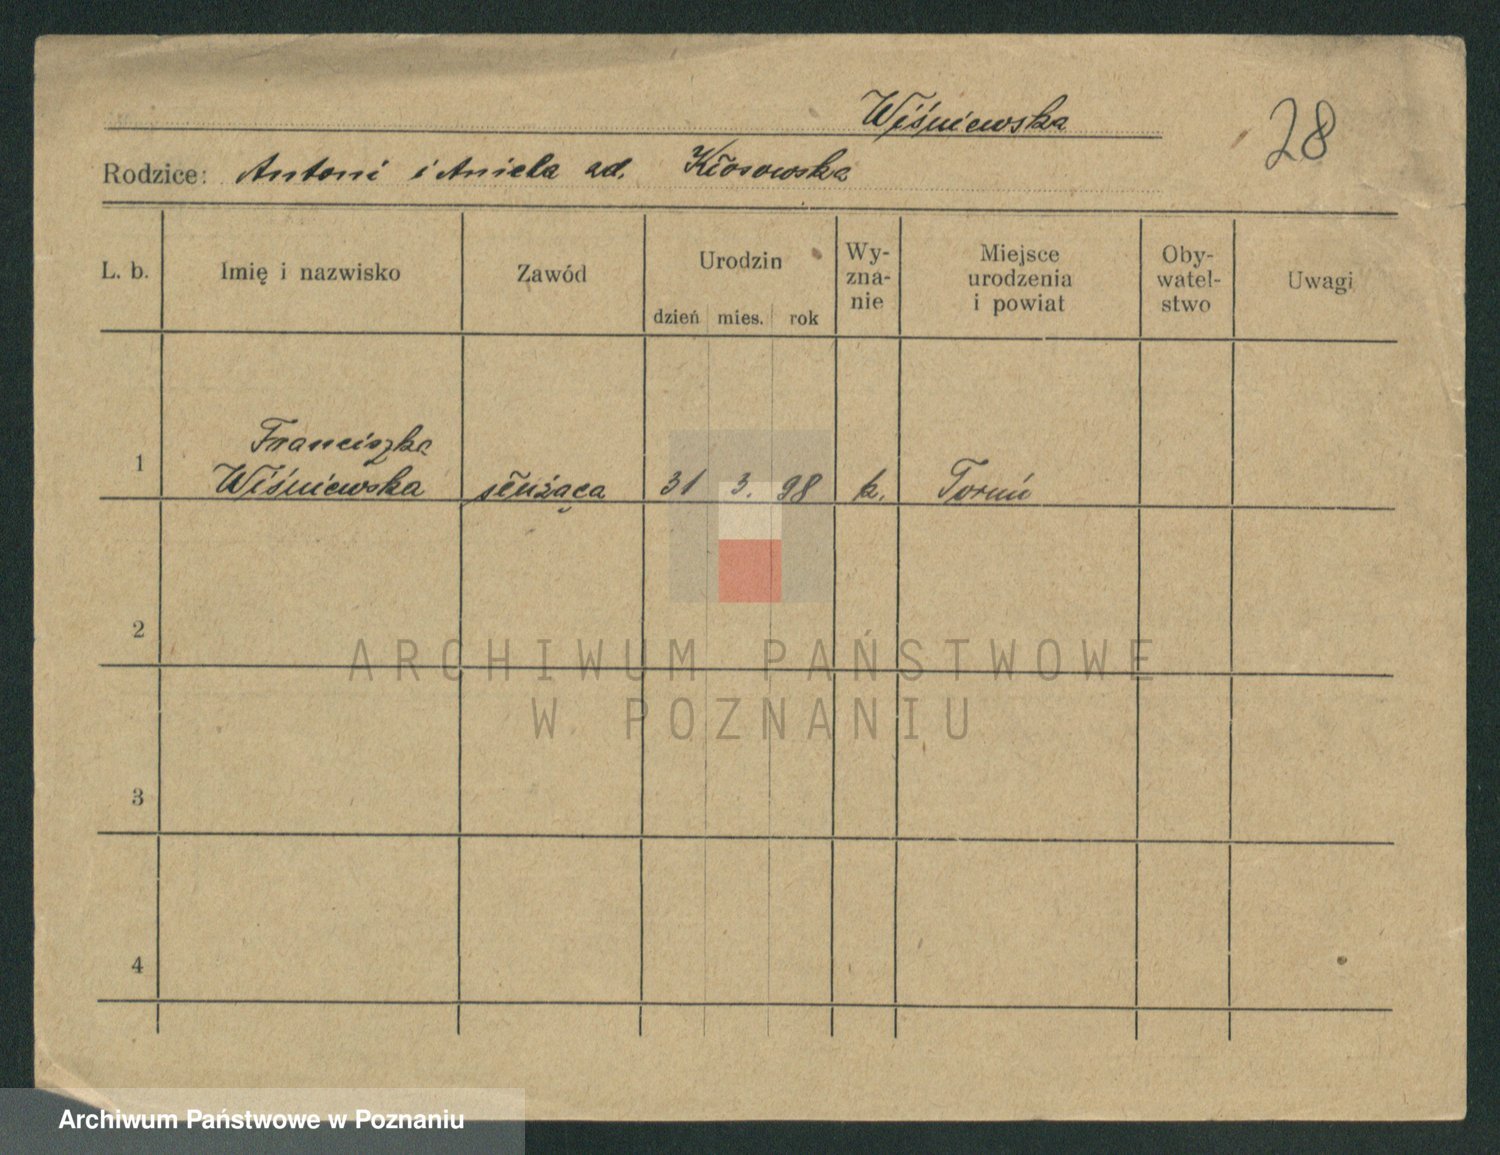 Wiśniewska
28
Rodzice: Antoni i Aniela ad. Kłosowska
L. b. Imię i nazwisko Zawód Urodzin Wy-
zna-
nie Miejsce
urodzenia
i powiat Oby-
watel-
stwo Uwagi
dzień mies. rok
1 Franciszka
Wiśniewska służąca 31 3. 98 k. Toruń
2
3
4
ARCHIWUM PAŃSTWOWE
W POZNANIU
Archiwum Państwowe w Poznaniu